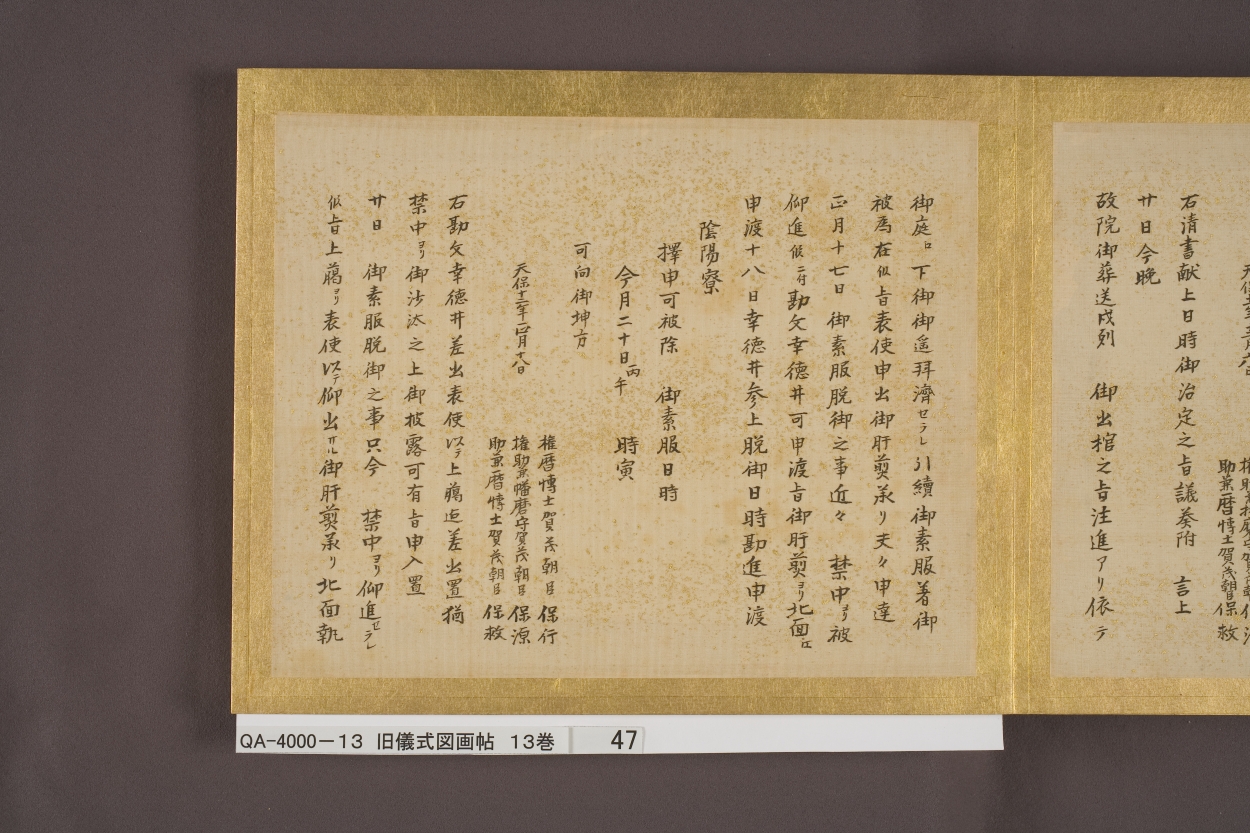 助兼暦博士賀茂朝臣保救
右清書献上日時御治定之旨議奏附 言上
廿日今晩
故院御葬送戌刻 御出棺之旨注進アリ依テ
御庭ロ下御御遥拝済セラレ引續御素服著御
被為在以旨表使申出御肝煎承リ夫々申達
正月十七日御素服脱御之事近々 禁中ヨリ被
仰進候ニ付勘文幸徳井可申渡旨御肝煎ヨリ北面江
申渡十八日幸徳井参上脱御日時勘進申渡
陰陽寮
擇申可被除 御素服日時
今月二十日丙午 時寅
可向御坤方
天保十二年正月十八日
権暦博士賀茂朝臣保行
権助兼播磨守賀茂朝臣保源
助兼暦博士賀茂朝臣保救
右勘文幸徳井差出表使以テ上臈迄差出置猶
禁中ヨリ御沙汰之上御披露可有旨申入置
廿日 御素服脱御之事只今 禁中ヨリ仰進セラレ
候旨上臈ヨリ表使以テ仰出サル御肝煎承リ北面執
QA-4000-13 旧儀式図画帖 13巻 47